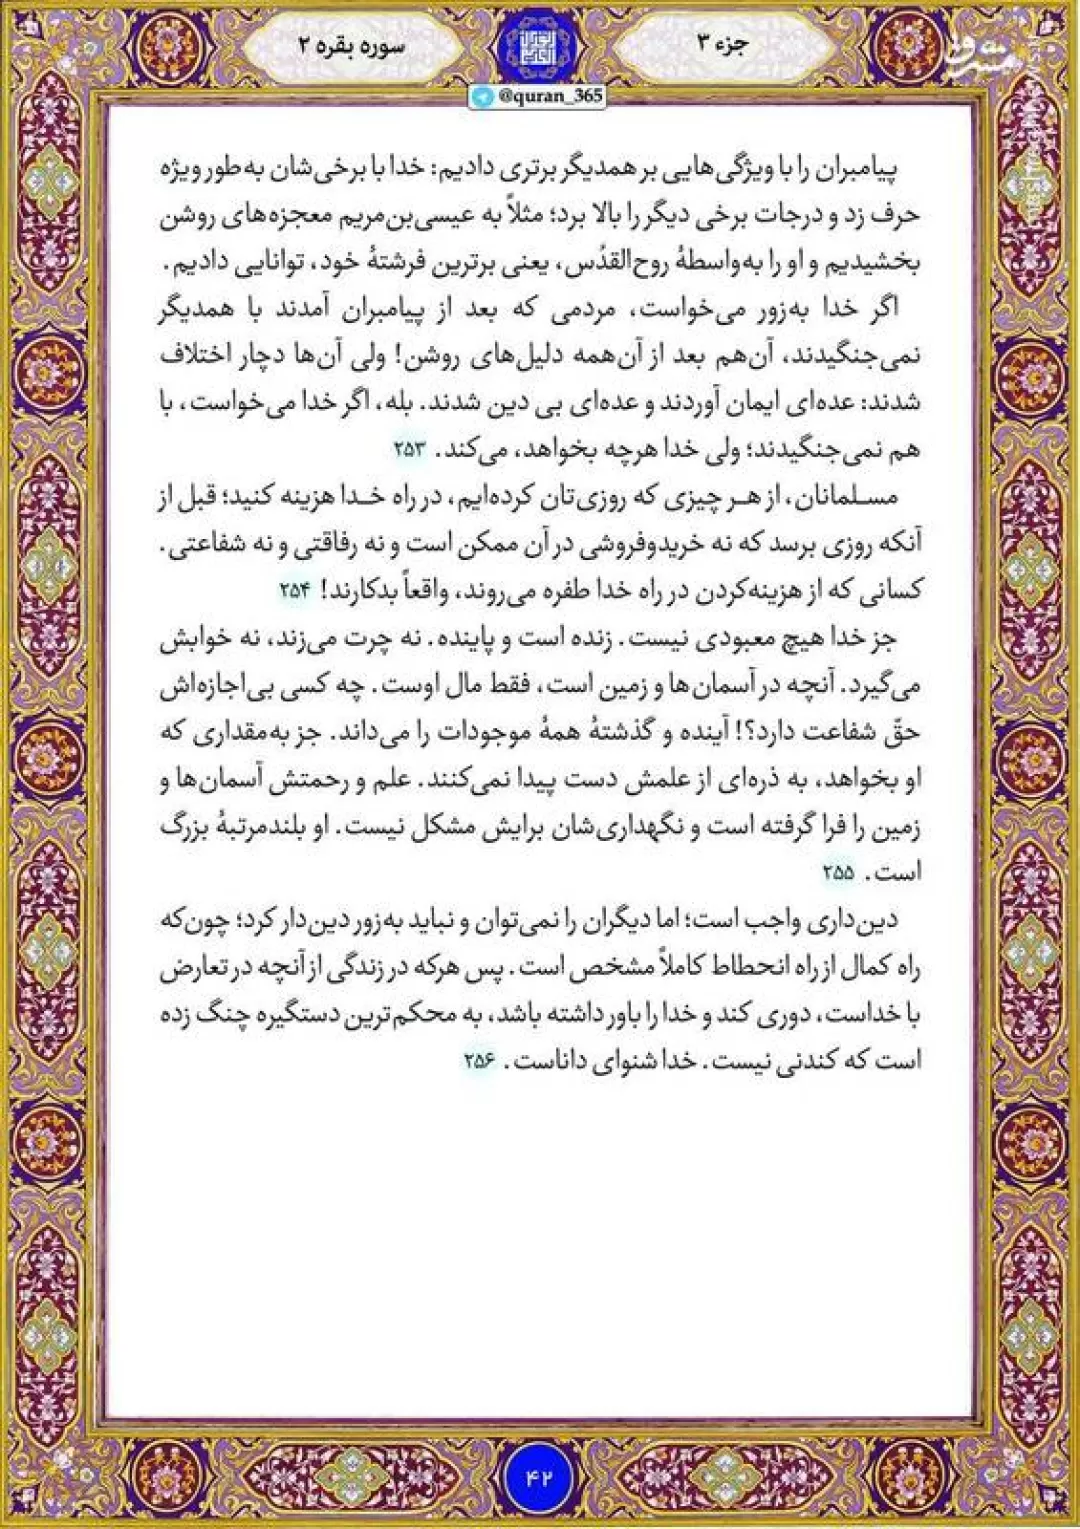 جزء ۳
سوره بقره ۲
مشرق
@quran_365
پیامبران را با ویژگی‌هایی بر همدیگر برتری دادیم: خدا با برخی‌شان به‌طور ویژه
حرف زد و درجات برخی دیگر را بالا برد؛ مثلاً به عیسی‌بن‌مریم معجزه‌های روشن
بخشیدیم و او را به‌واسطهٔ روح‌القدُس، یعنی برترین فرشتهٔ خود، توانایی دادیم.
اگر خدا به‌زور می‌خواست، مردمی که بعد از پیامبران آمدند با همدیگر
نمی‌جنگیدند، آن‌هم بعد از آن‌همه دلیل‌های روشن! ولی آن‌ها دچار اختلاف
شدند: عده‌ای ایمان آوردند و عده‌ای بی دین شدند. بله، اگر خدا می‌خواست، با
هم نمی‌جنگیدند؛ ولی خدا هرچه بخواهد، می‌کند. ۲۵۳
مسلمانان، از هر چیزی که روزی‌تان کرده‌ایم، در راه خدا هزینه کنید؛ قبل از
آنکه روزی برسد که نه خریدوفروشی در آن ممکن است و نه رفاقتی و نه شفاعتی.
کسانی که از هزینه‌کردن در راه خدا طفره می‌روند، واقعاً بدکارند! ۲۵۴
جز خدا هیچ معبودی نیست. زنده است و پاینده. نه چرت می‌زند، نه خوابش
می‌گیرد. آنچه در آسمان‌ها و زمین است، فقط مال اوست. چه کسی بی‌اجازه‌اش
حقّ شفاعت دارد؟! آینده و گذشتهٔ همهٔ موجودات را می‌داند. جز به‌مقداری که
او بخواهد، به ذره‌ای از علمش دست پیدا نمی‌کنند. علم و رحمتش آسمان‌ها و
زمین را فرا گرفته است و نگهداری‌شان برایش مشکل نیست. او بلندمرتبهٔ بزرگ
است. ۲۵۵
دین‌داری واجب است؛ اما دیگران را نمی‌توان و نباید به‌زور دین‌دار کرد؛ چون‌که
راه کمال از راه انحطاط کاملاً مشخص است. پس هرکه در زندگی از آنچه در تعارض
با خداست، دوری کند و خدا را باور داشته باشد، به محکم‌ترین دستگیره چنگ زده
است که کندنی نیست. خدا شنوای داناست. ۲۵۶
۴۲